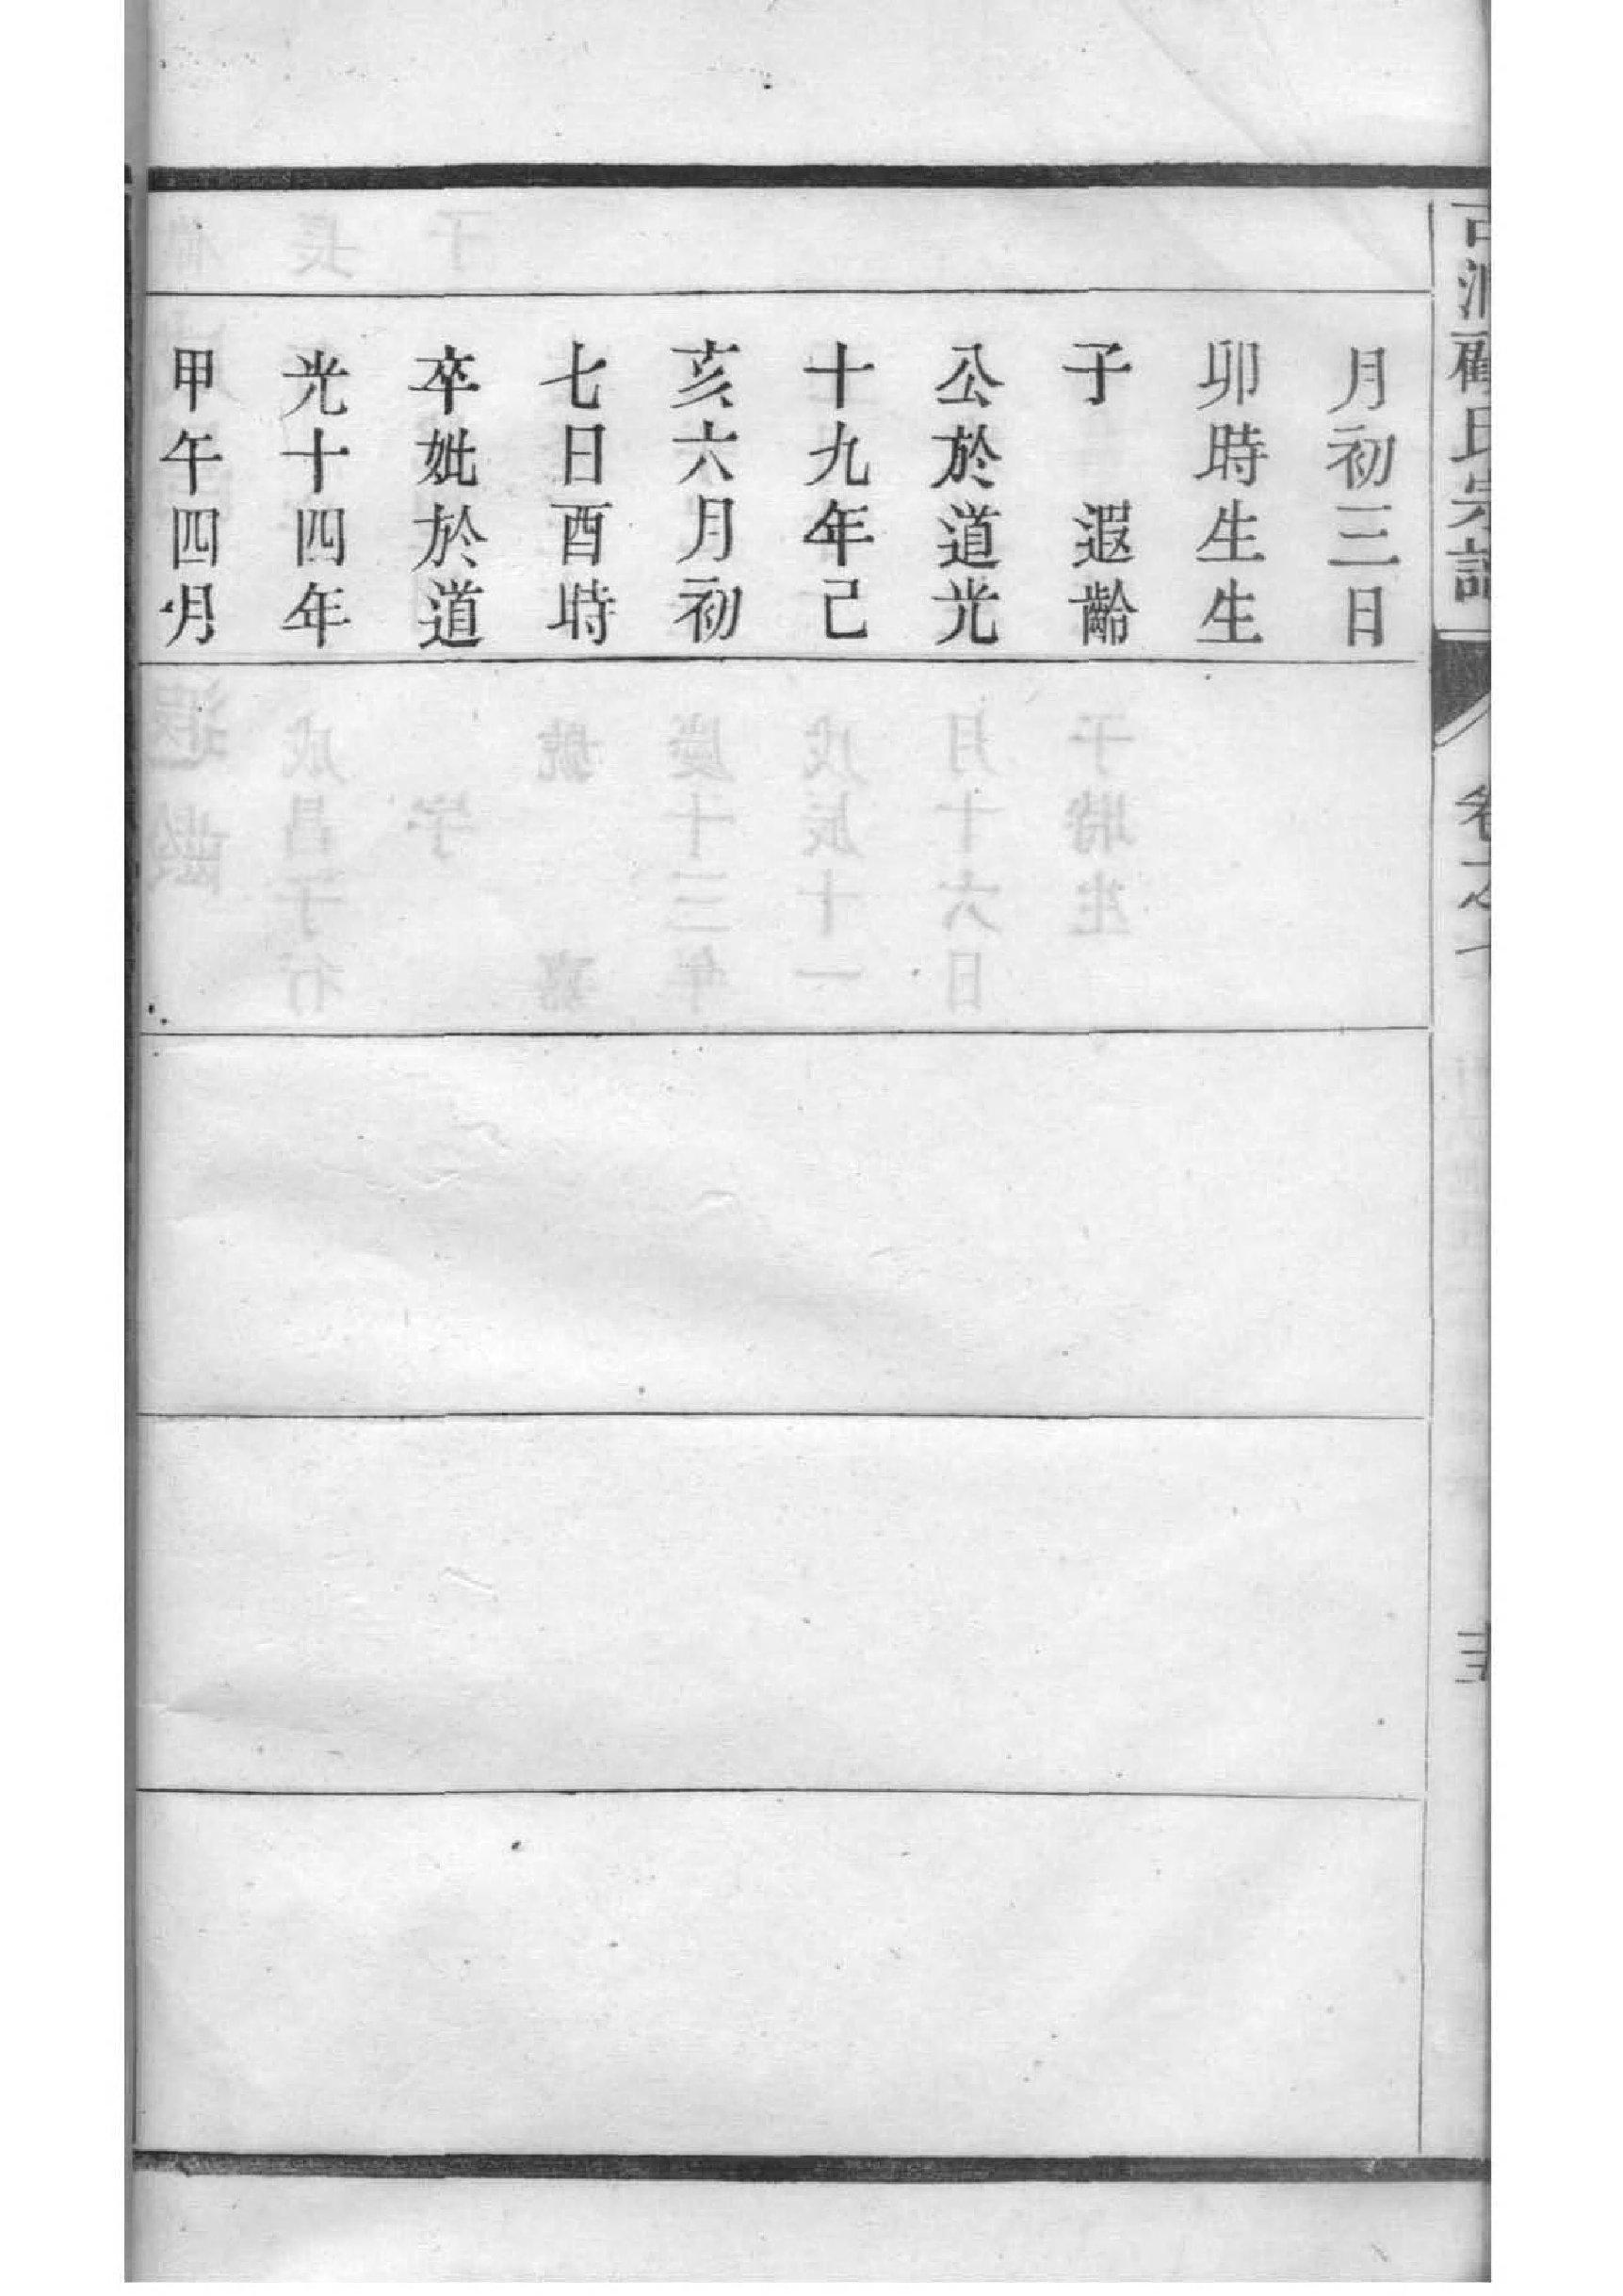 月初三日
卯時生生
子　遐齡
公於道光
十九年己
亥六月初
七日酉時
卒妣於道
光十四年
甲午四月